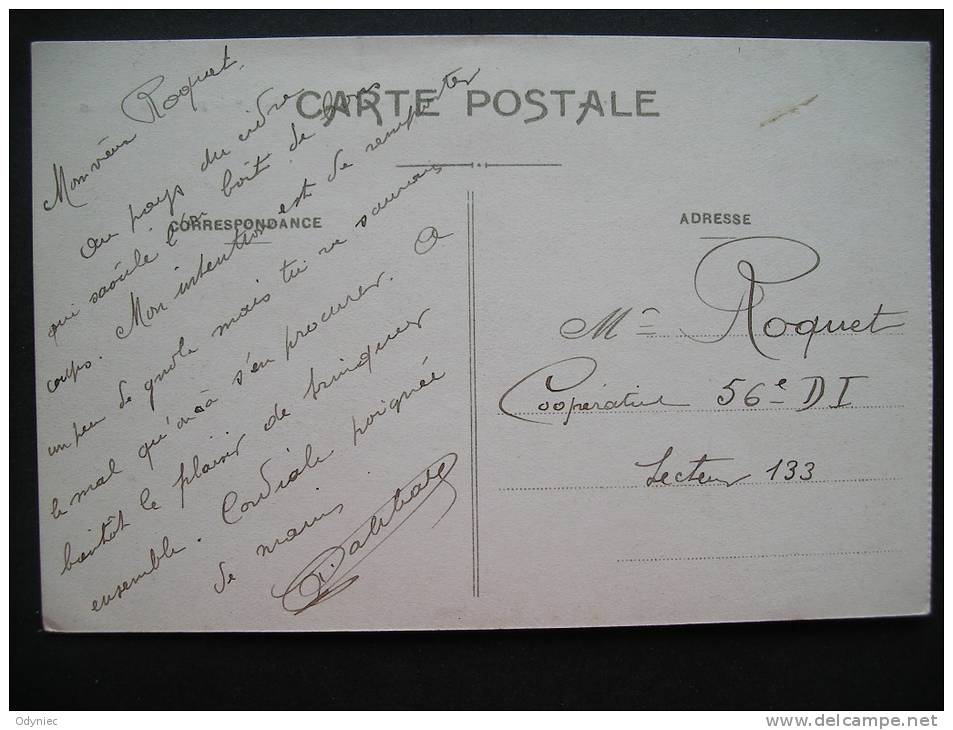 CARTE POSTALE
CORRESPONDANCE
Mon vieux Roquet,
Au pays du cidre
qui saoûle l'on boit de bons
coups. Mon intention est de remporter
un peu de gnole mais tu ne saurais
le mal qu'on a à s'en procurer. A
bientôt le plaisir de trinquer
ensemble. Cordiale poignée
de main
ADRESSE
Mr Roquet
Coopérative 56e DI
Secteur 133
Odyniec
www.delcampe.net